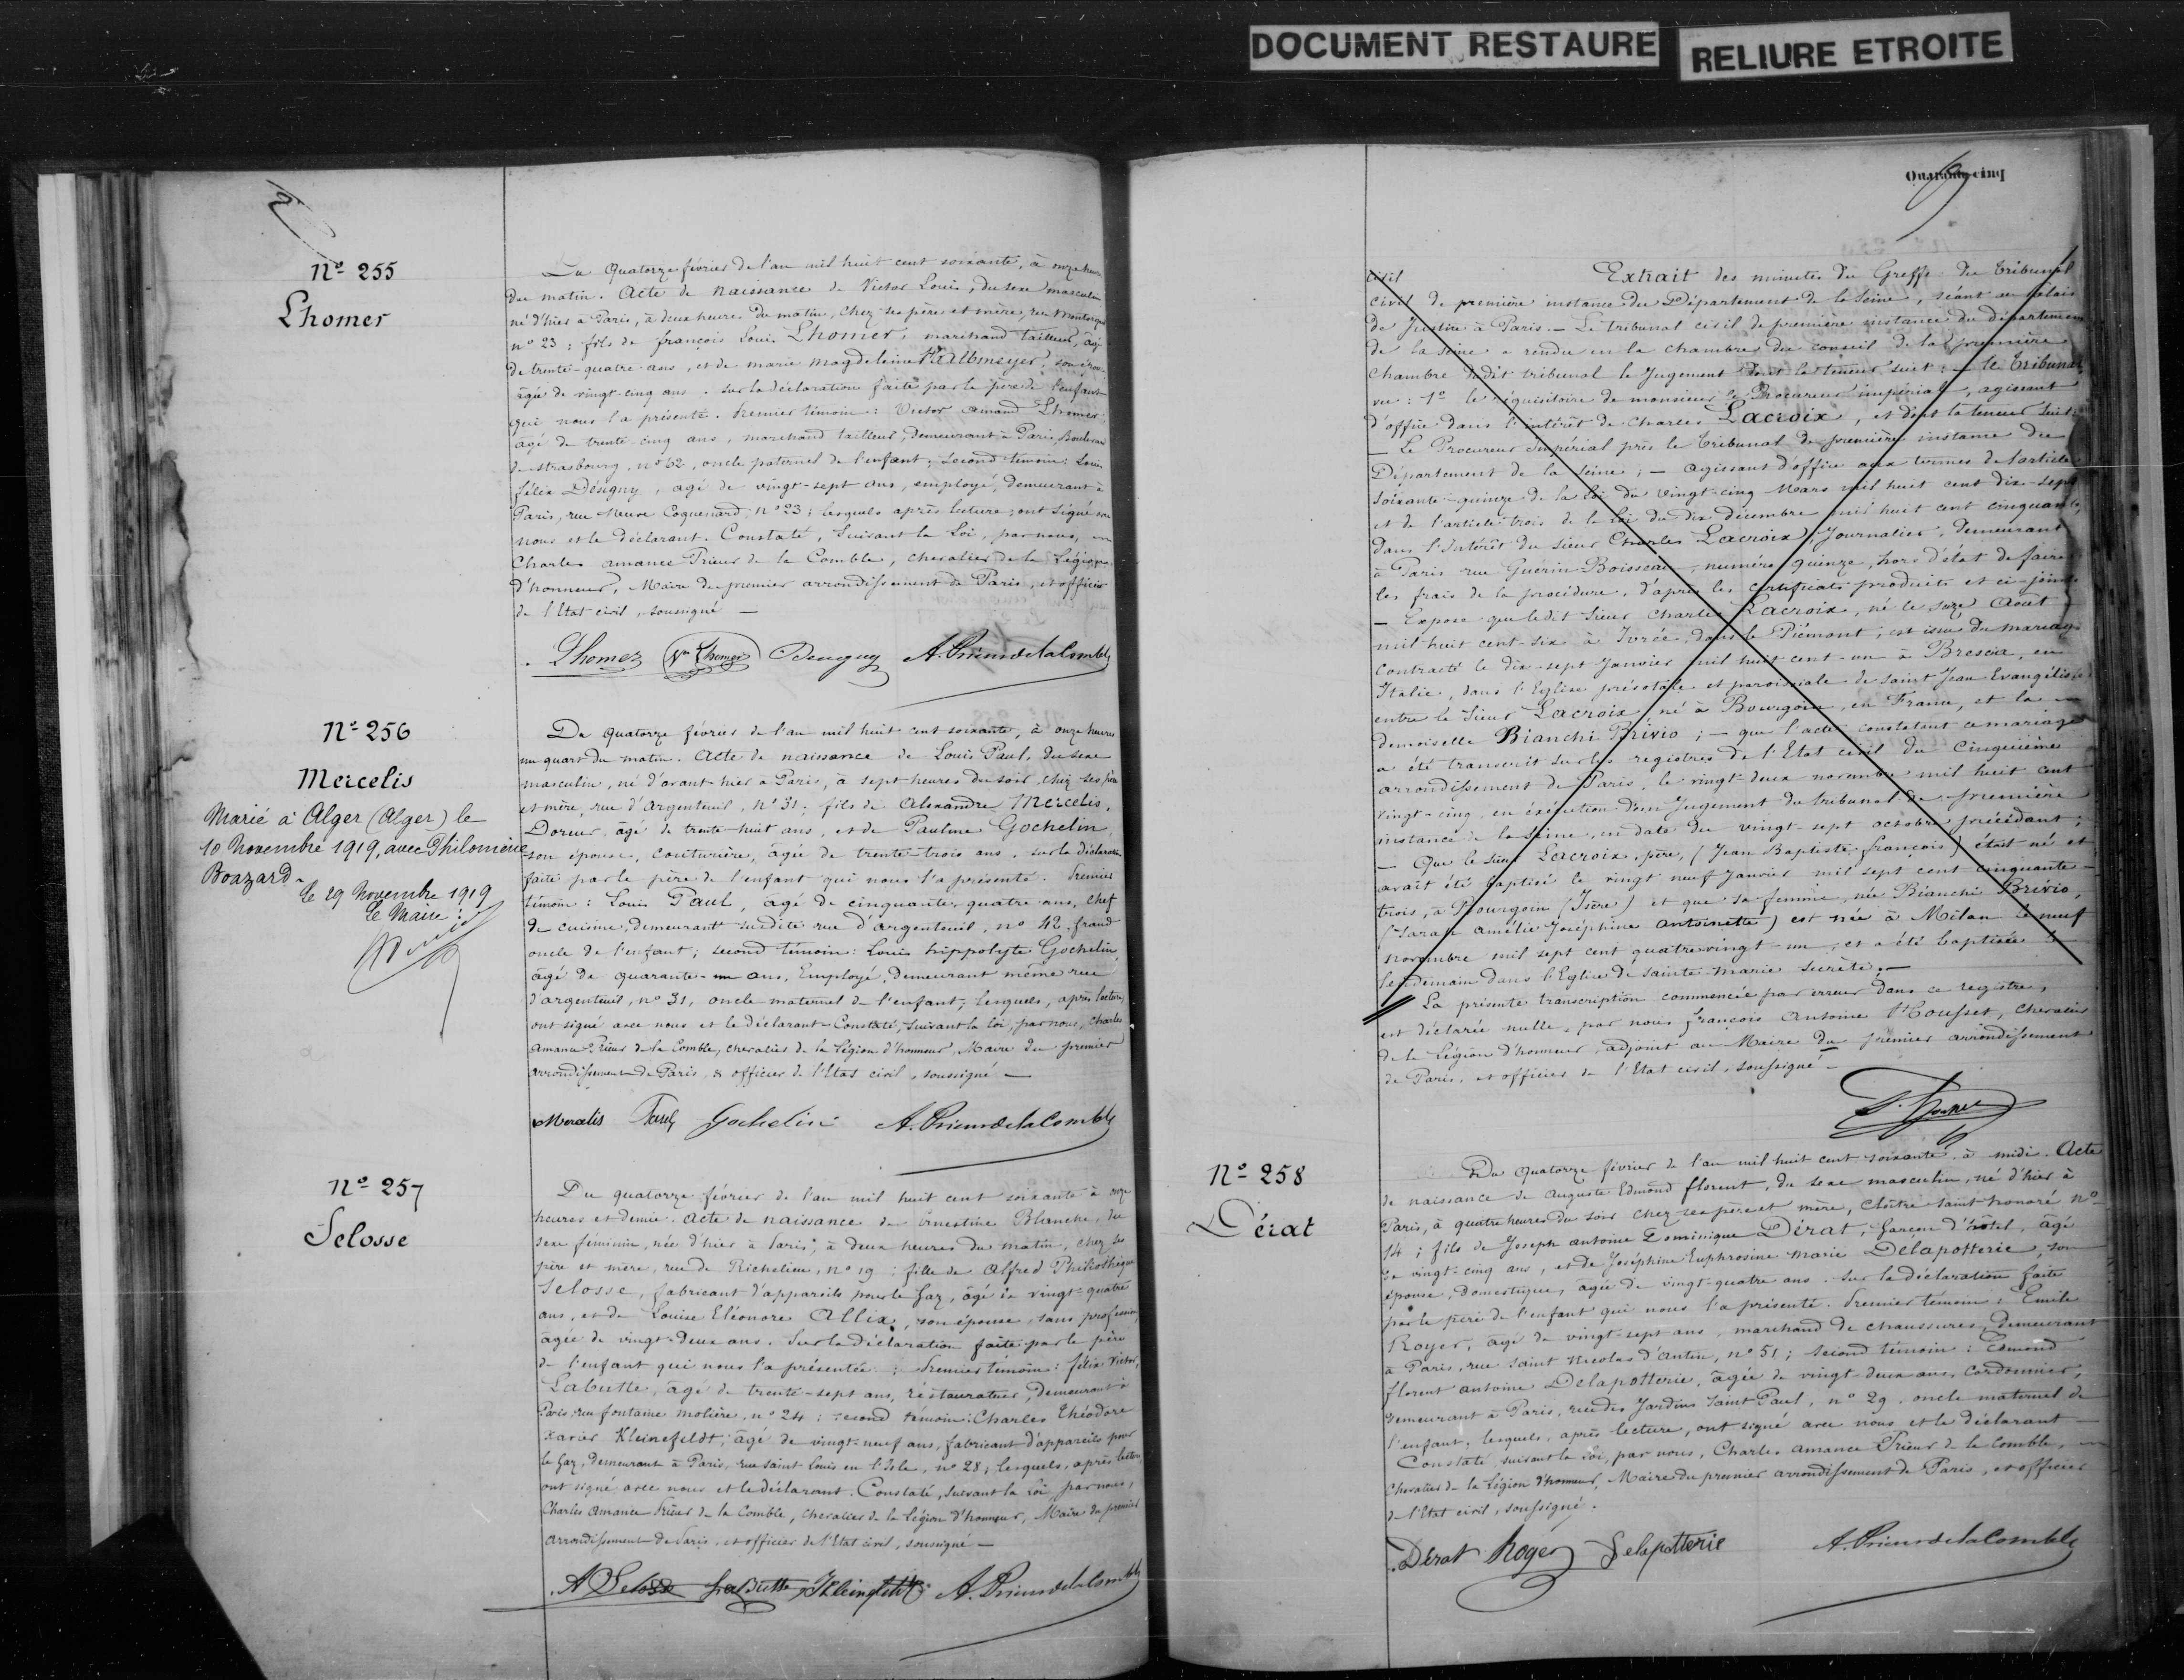 DOCUMENT RESTAURE
RELIURE ETROITE
Nº 255
Lhomer
Du Quatorze février de l'an mil huit cent soixante, à onze heures
du matin. Acte de naissance de Victor Louis, du sexe masculin
né d'hier à Paris, à deux heures du matin, chez ses père et mère, rue Montorgueil
nº 23 ; fils de françois Louis Lhomer, marchand tailleur, âgé
de trente-quatre ans, et de marie magdeleine Kalbmeyer, son épouse
âgée de vingt-cinq ans. sur la déclaration faite par le père de l'enfant
qui nous l'a présenté. Premier témoin : Victor amand Lhomer
âgé de trente-cinq ans, marchand tailleur, demeurant à Paris, Boulevard
de strasbourg, nº 62, oncle paternel de l'enfant ; second témoin : Louis
félix Désigny, âgé de vingt-sept ans, employé, demeurant à
Paris, rue Neuve Coquenard, nº 23 ; lesquels après lecture, ont signé avec
nous et le déclarant. Constaté, Suivant la Loi, par nous,
Charles amance Prieur de la Comble, chevalier de la Légion
d'honneur, Maire du premier arrondissement de Paris, et officier
de l'Etat civil, soussigné —
Lhomer Vor Lhomer A. Prieur de la Comble
Nº 256
Mercelis
Marié à Alger (Alger) le
10 Novembre 1919, avec Philomène
Boazard.
le 29 Novembre 1919
Le Maire :
Du quatorze février de l'an mil huit cent soixante, à onze heures
un quart du matin. Acte de naissance de Louis Paul, du sexe
masculin, né d'avant-hier à Paris, à sept heures du soir, chez ses père
et mère, rue d'argenteuil, nº 31 ; fils de Alexandre Mercelis,
Doreur, âgé de trente-huit ans, et de Pauline Gochelin,
son épouse, couturière, âgée de trente-trois ans. sur la déclaration
faite par le père de l'enfant qui nous l'a présenté. Premier
témoin : Louis Paul, âgé de cinquante-quatre ans, chef
de cuisine, demeurant susdite rue d'argenteuil, nº 42, grand
oncle de l'enfant ; second témoin : Louis hippolyte Gochelin,
âgé de quarante-un ans, Employé, demeurant même rue
d'argenteuil, nº 31, oncle maternel de l'enfant, lesquels, après lecture,
ont signé avec nous et le déclarant. Constaté, suivant la loi, par nous, Charles
Amance Prieur de la Comble, chevalier de la légion d'honneur, Maire du premier
arrondissement de Paris, & officier de l'Etat civil, soussigné —
Mercelis Paul Gochelin A. Prieur de la Comble
Nº 257
Selosse
Du quatorze février de l'an mil huit cent soixante à onze
heures et demie. Acte de naissance de Ernestine Blanche, du
sexe féminin, née d'hier à Paris, à deux heures du matin, chez ses
père et mère, rue de Richelieu, nº 19 ; fille de Alfred Philiothique
Selosse, fabricant d'appareils pour le Gaz, âgé de vingt-quatre
ans, et de Louise Eléonore Allix, son épouse, sans profession,
âgée de vingt-deux ans. Sur la déclaration faite par le père
de l'enfant qui nous l'a présentée. ; Premier témoin : félix Victor,
Labutte, âgé de trente-sept ans, restaurateur, demeurant à
Paris, rue fontaine molière, nº 24 ; second témoin : Charles Théodore
Xavier Kleinefeldt, âgé de vingt-neuf ans, fabricant d'appareils pour
le Gaz, demeurant à Paris, rue saint Louis en l'Isle, nº 28 ; lesquels, après lecture
ont signé avec nous et le déclarant. Constaté, suivant la loi par nous,
Charles Amance Prieur de la Comble, chevalier de la légion d'honneur, Maire du premier
arrondissement de Paris, et officier de l'Etat civil, soussigné —
A Selosse Labutte Kleinefeldt A. Prieur de la Comble
Quarante-cinq
civil Extrait des minutes du Greffe du Tribunal
civil de première instance du Département de la Seine, séant au Palais
de Justice à Paris. — Le tribunal civil de première instance du département
de la Seine a rendu en la chambre du conseil de la première
chambre dudit tribunal le Jugement dont la teneur suit : — le Tribunal,
vu : 1º le réquisitoire de monsieur le Procureur impérial, agissant
d'office dans l'intérêt de Charles Lacroix, et dont la teneur suit :
— Le Procureur Impérial près le Tribunal de première instance du
Département de la Seine ; — agissant d'office aux termes de l'article
soixante-quinze de la Loi du vingt-cinq Mars mil huit cent dix-sept
et de l'article trois de la loi du dix décembre mil huit cent cinquante,
dans l'intérêt du sieur Charles Lacroix, Journalier, demeurant
à Paris rue Guérin-Boisseau, numéro quinze, hors d'état de faire
les frais de la procédure, d'après les certificats produits et ci-joints
— Expose que ledit sieur Charles Lacroix, né le seize Août
mil huit cent-six à Ivrée, dans le Piémont, est issu du mariage
contracté le dix-sept Janvier mil huit cent-un à Brescia, en
Italie, dans l'Eglise prévotale et paroissiale de saint Jean Evangéliste
entre le sieur Lacroix, né à Bourgoin, en France, et la
demoiselle Bianchi Brivio ; — que l'acte constatant ce mariage
a été transcrit sur les registres de l'Etat civil du Cinquième
arrondissement de Paris, le vingt-deux novembre mil huit cent
vingt-cinq, en exécution d'un Jugement du tribunal de première
instance de la Seine, en date du vingt-sept octobre précédent ;
— Que le sieur Lacroix, père, (Jean Baptiste françois) était né et
avait été baptisé le vingt neuf Janvier mil sept cent cinquante-
trois, à Bourgoin (Isère) et que sa femme, née Bianchi Brivio,
(Sarah Amélie Joséphine Antoinette) est née à Milan le neuf
novembre mil sept cent quatre vingt-un, et a été baptisée le
lendemain dans l'Eglise de Sainte-Marie Secrète. —
La présente transcription commencée par erreur dans ce registre,
est déclarée nulle, par nous françois Antoine Housset, chevalier
de la Légion d'honneur, adjoint au Maire du premier arrondissement
de Paris, et officier de l'Etat civil, soussigné —
Nº 258
Dérat
Du quatorze février de l'an mil huit cent soixante à midi. Acte
de naissance de Auguste Edmond florent, du sexe masculin, né d'hier à
Paris, à quatre heures du soir chez ses père et mère, cloître saint honoré nº
14 ; fils de Joseph antoine Dominique Dérat, garçon d'hôtel, âgé
de vingt-cinq ans, et de Joséphine Euphrosine Marie Delapotterie, son
épouse, domestique, âgée de vingt-quatre ans. Sur la déclaration faite
par le père de l'enfant qui nous l'a présenté. Premier témoin : Emile
Royer, âgé de vingt-sept ans, marchand de chaussures, demeurant
à Paris, rue saint Nicolas d'antin, nº 51 ; second témoin : Edmond
florent antoine Delapotterie, âgée de vingt-deux ans, cordonnier,
demeurant à Paris, rue des Jardins Saint Paul, nº 29, oncle maternel de
l'enfant, lesquels, après lecture, ont signé avec nous et le déclarant —
Constaté suivant la loi, par nous, Charles amance Prieur de la Comble,
Chevalier de la Légion d'honneur, Maire du premier arrondissement de Paris, et officier
de l'Etat civil, soussigné.
Dérat Roger Delapotterie A. Prieur de la Comble